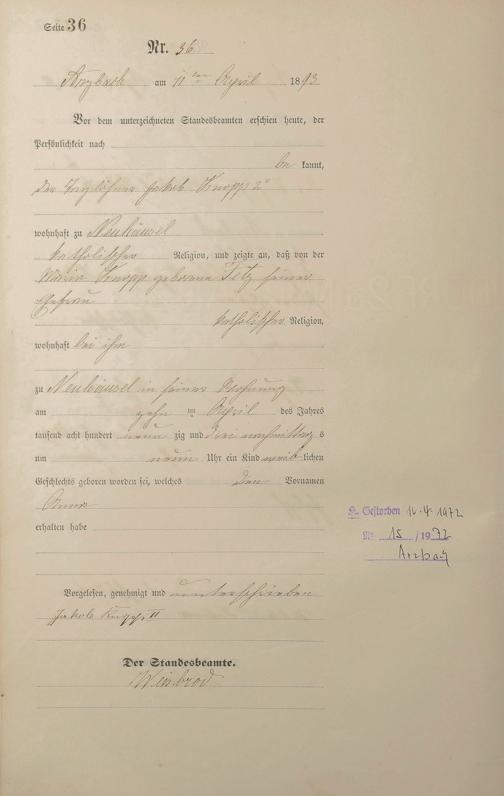 Seite 36
Nr. 36
Arzbach am 11ten April 1893
Vor dem unterzeichneten Standesbeamten erschien heute, der
Persönlichkeit nach
be kannt,
der Taglöhner Jakob Knopp 2r
wohnhaft zu Neuhäusel
katholischer Religion, und zeigte an, daß von der
Maria Knopp geborene seiner
Ehefrau
katholischer Religion,
wohnhaft bei ihm
zu Neuhäusel in seiner Wohnung
am zehn ten April des Jahres
tausend acht hundert neun zig und drei nachmittags
um neun Uhr ein Kind weib lichen
Geschlechts geboren worden sei, welches den Vornamen
Anna
erhalten habe
Vorgelesen, genehmigt und unterschrieben
Jakob Knopp II
Der Standesbeamte.
Gestorben 4 1972
Nr. 15 /1972
Arzbach